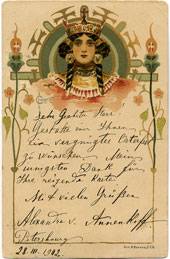 Sehr Geehrter Herr
Gestatte mir Ihnen
Ein vergnügtes Osterfest
zu wünschen. Mein
innigsten Dank für
Ihre reizende Karte.
Mit vielen Grüßen
Alexandra v. Annenkoff
Petersbourg
28. III. 1902.